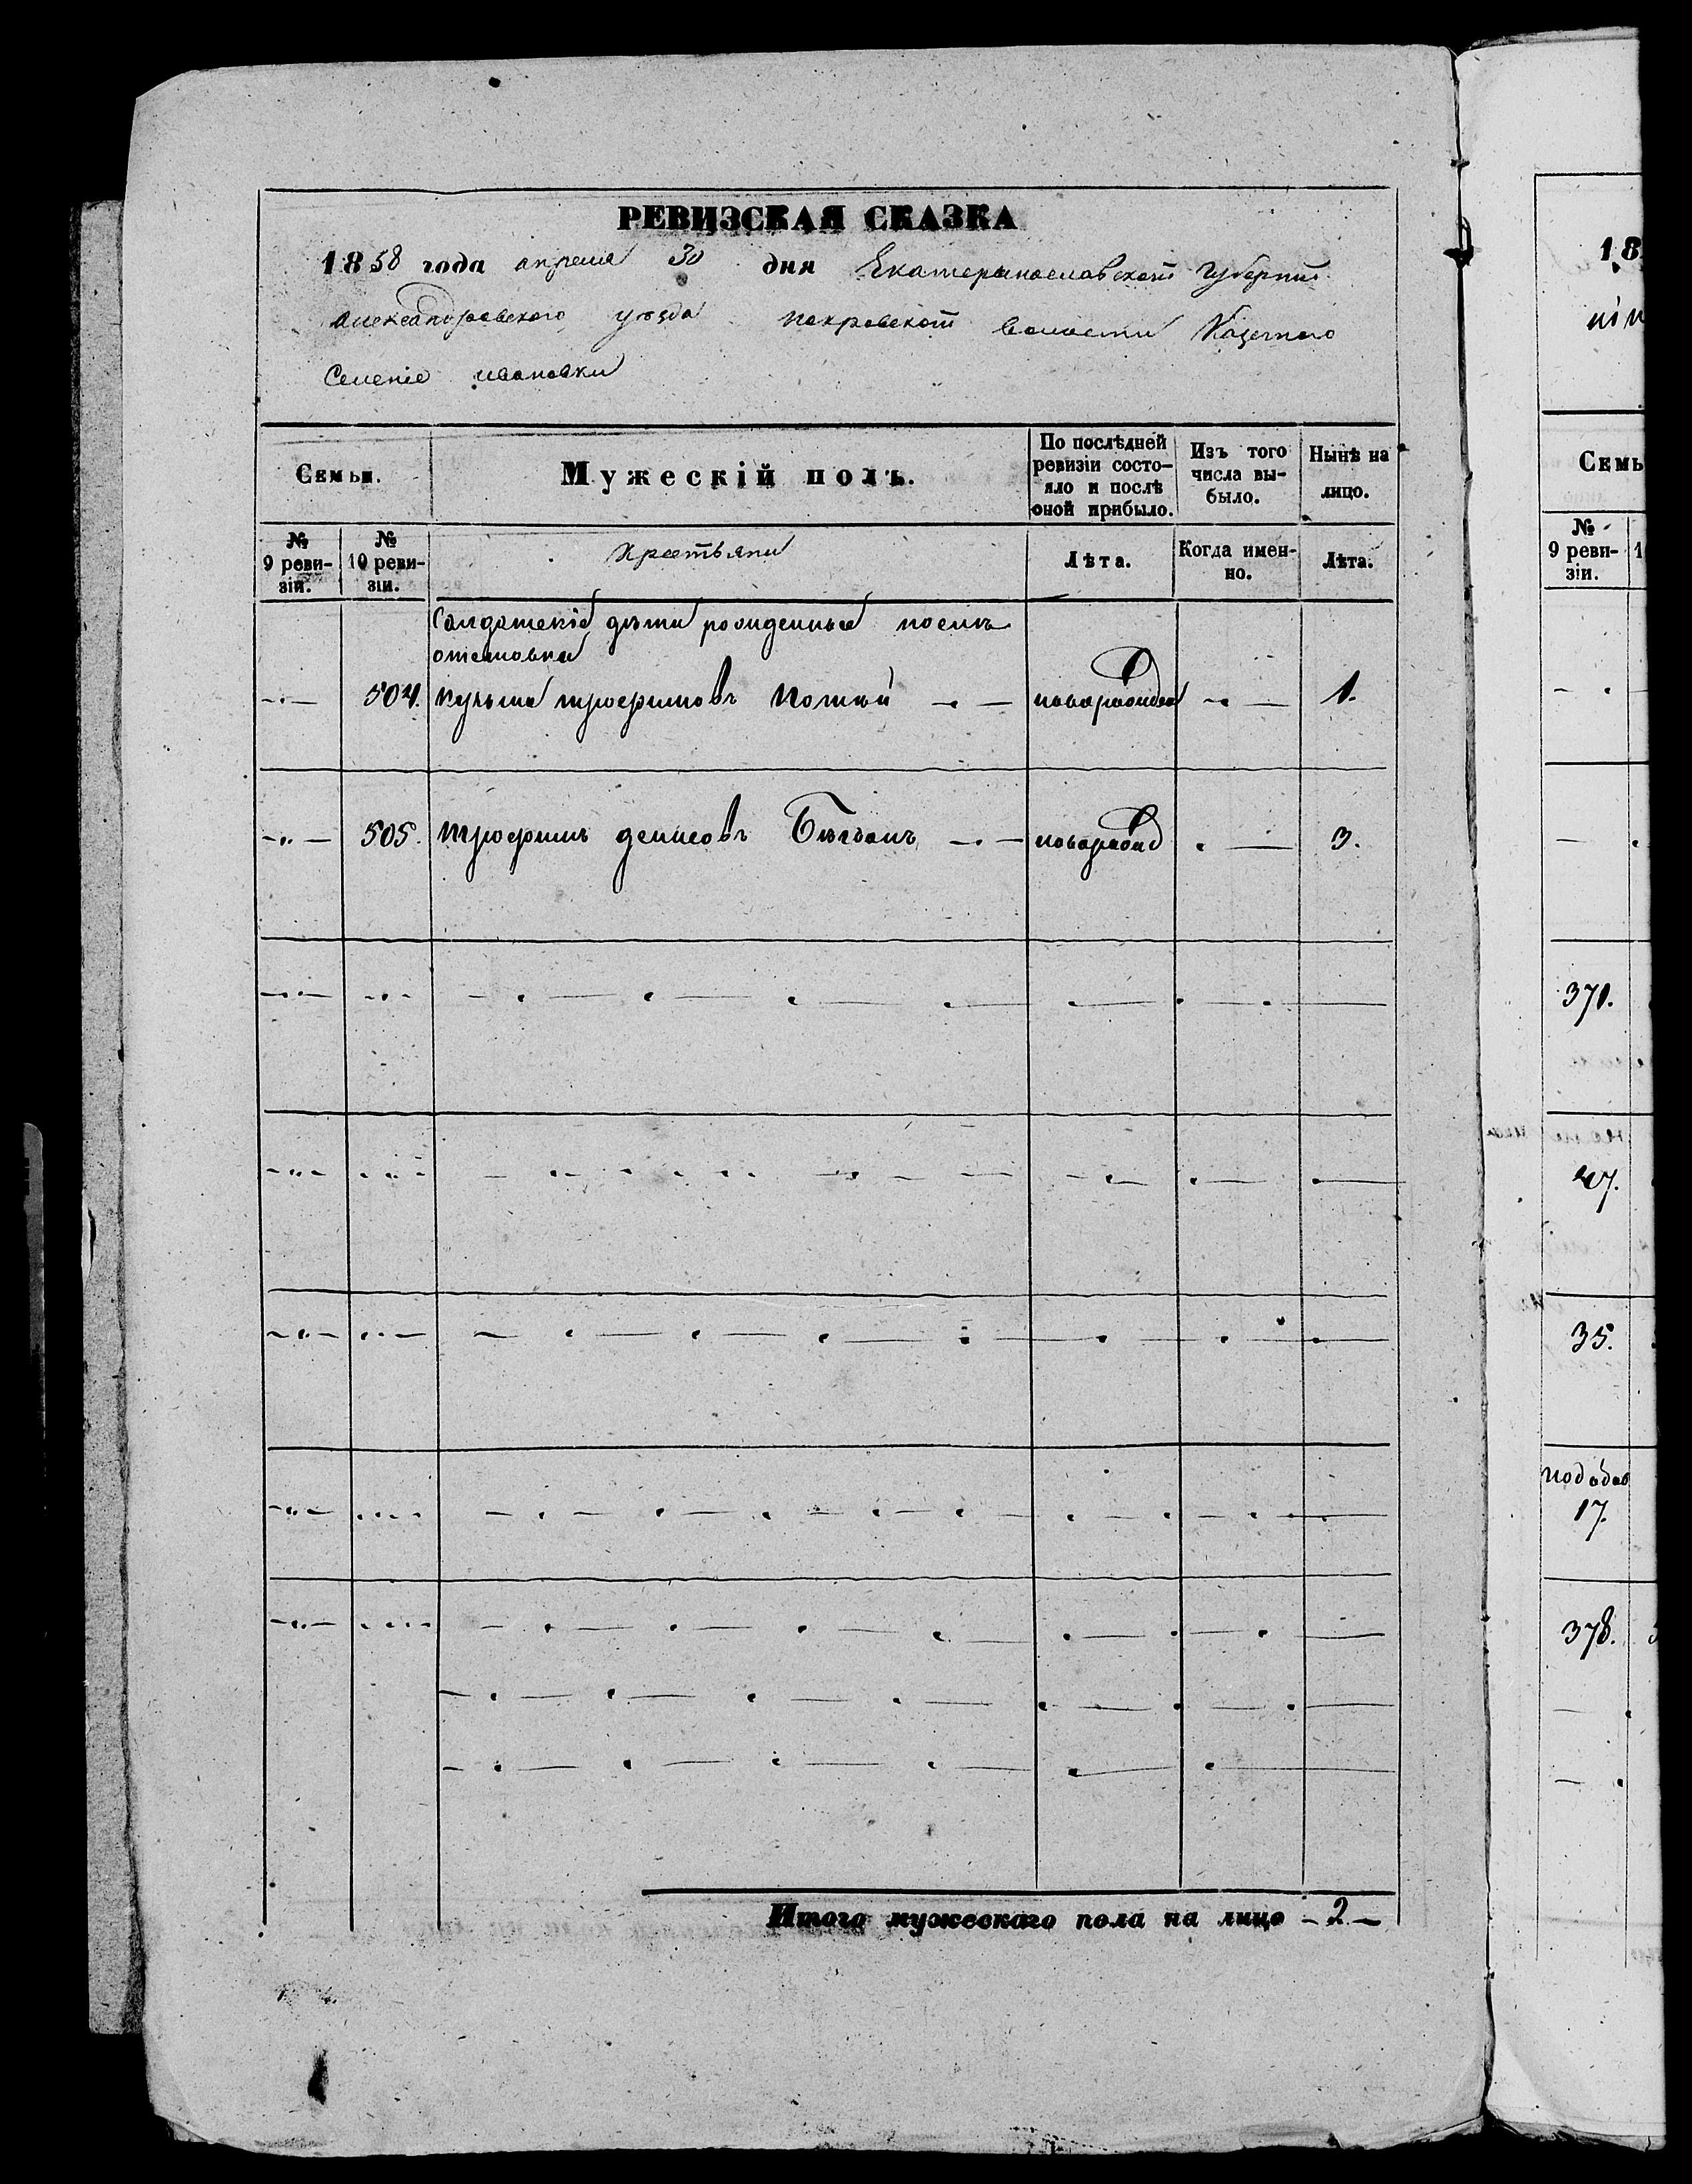 РЕВИЗСКАЯ СКАЗКА
1858 года апреля 30 дня Екатеринославской Губернии
александровского уѣзда покровской волости Казеннаго
Селеніе ивановки
Семьи.
Мужескій полъ.
По послѣдней ревизіи состо-
яло и послѣ оной прибыло.
Изъ того числа вы-
было.
Нынѣ на лицо.
№ 9 реви-
зіи.
№ 10 реви-
зіи.
Крестьяни
Лѣта.
Когда имен-
но.
Лѣта.
Салдатскіе дѣти рожденные послѣ
504. кузьма трофимовъ новорожден 1.
505. трофимъ денисовъ новорожд 3.
Итого мужескаго пола на лицо - 2 -
18
Семь
№ 9 реви-
зіи.
371.
47.
35.
17.
378.